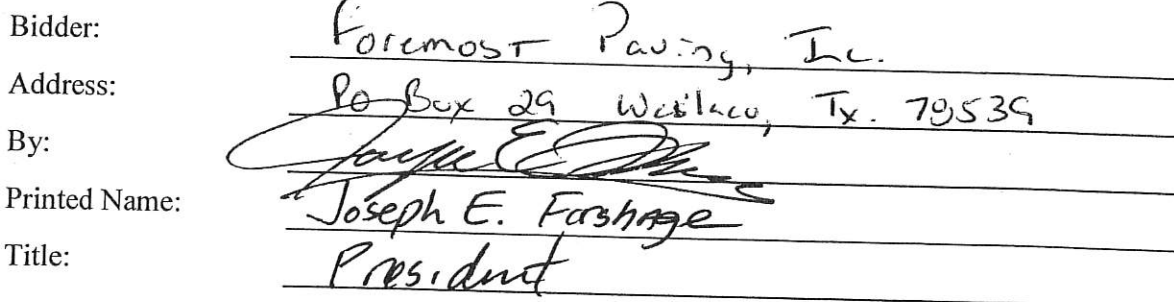 Bidder: Foremost Paving, Inc.
Address: PO Box 29 Weslaco, Tx. 78539
By:
Printed Name: Joseph E. Forshage
Title: President